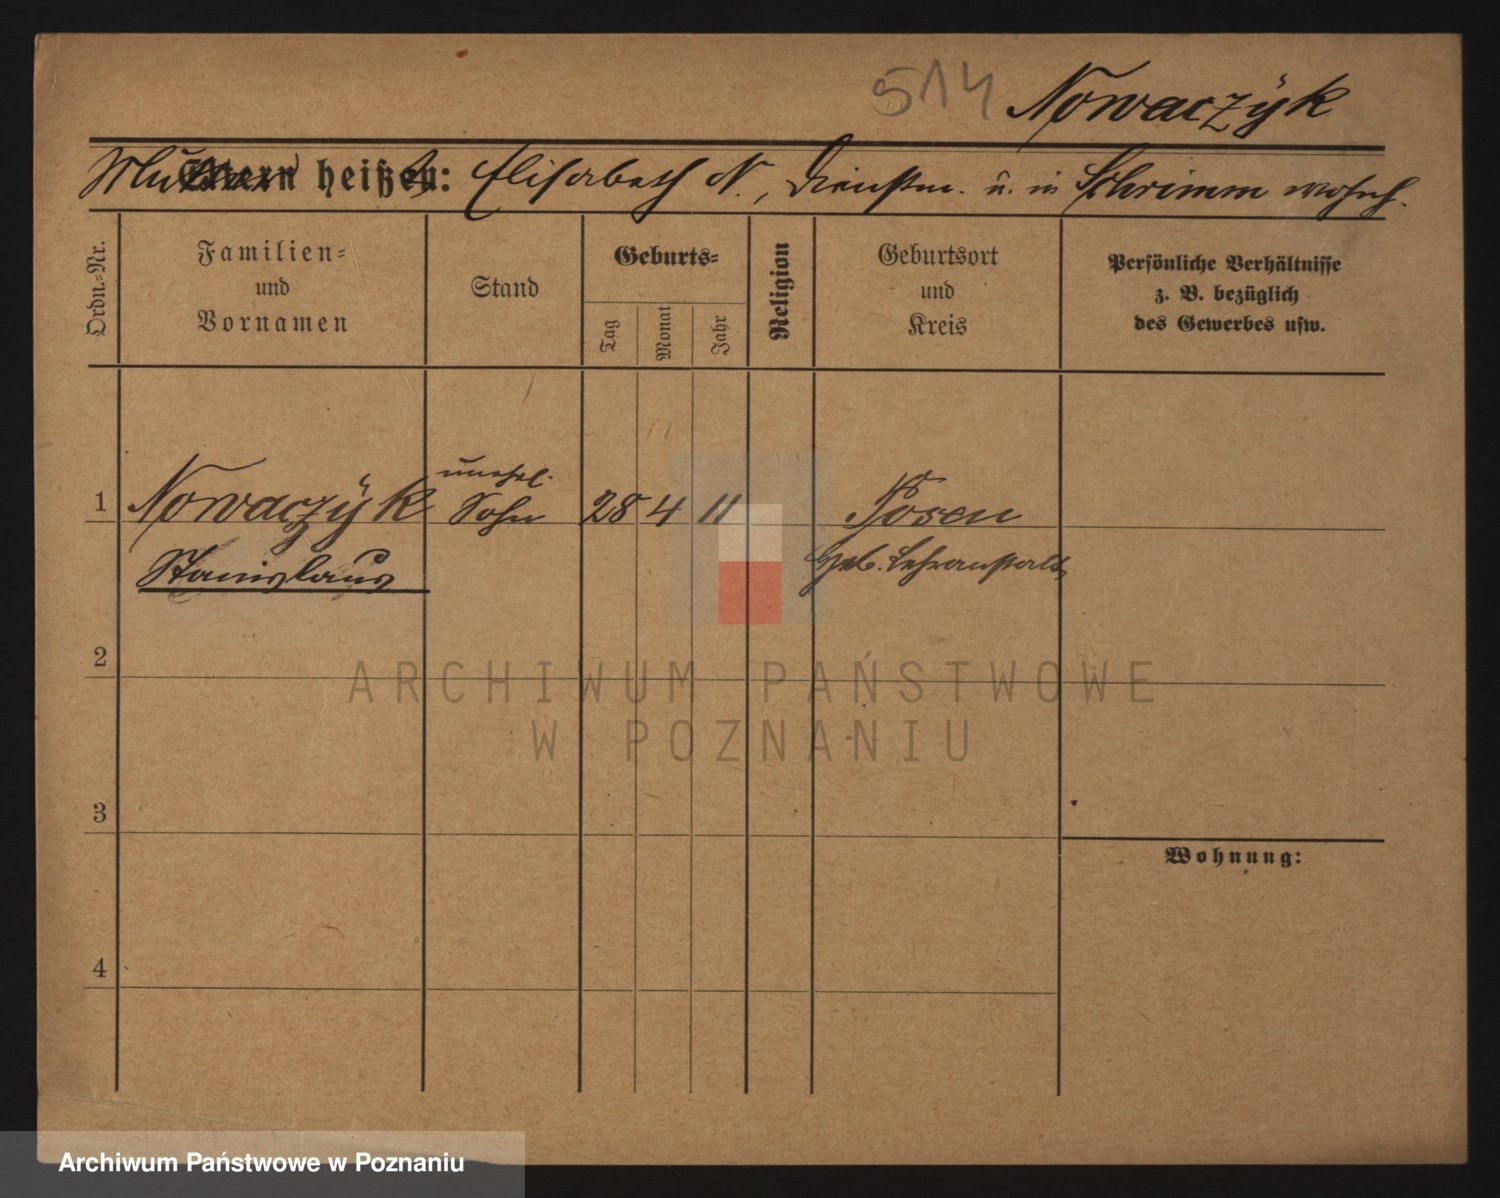 514 Nowaczÿk
Mutter heißt: Elisabeth N., Dienstm. u. in Schrimm wohnh.
Ordn.-Nr.
Familien=
und
Vornamen
Stand
Geburts=
Tag
Monat
Jahr
Religion
Geburtsort
und
Kreis
Persönliche Verhältnisse
z. B. bezüglich
des Gewerbes usw.
1 Nowaczÿk unehel. Sohn 28 4 11 Posen
Stanislaus Heb. Lehranstalt
2
3
4
Wohnung:
ARCHIWUM PAŃSTWOWE
W POZNANIU
Archiwum Państwowe w Poznaniu